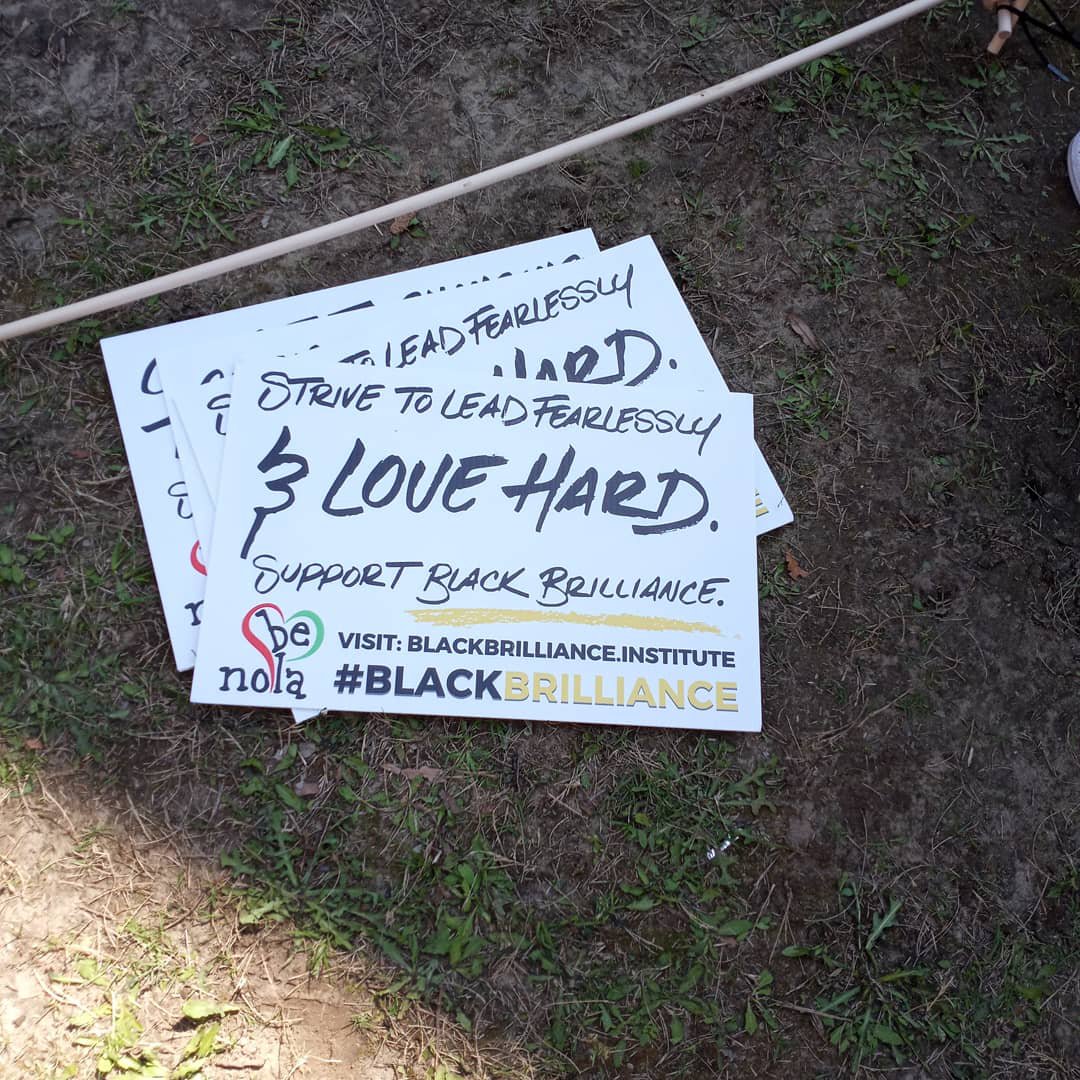 TO LEAD FEARLESSLY
HARD.
STRIVE TO LEAD FEARLESSLY
& LOVE HARD.
SUPPORT BLACK BRILLIANCE.
be
nola
VISIT: BLACKBRILLIANCE.INSTITUTE
#BLACKBRILLIANCE